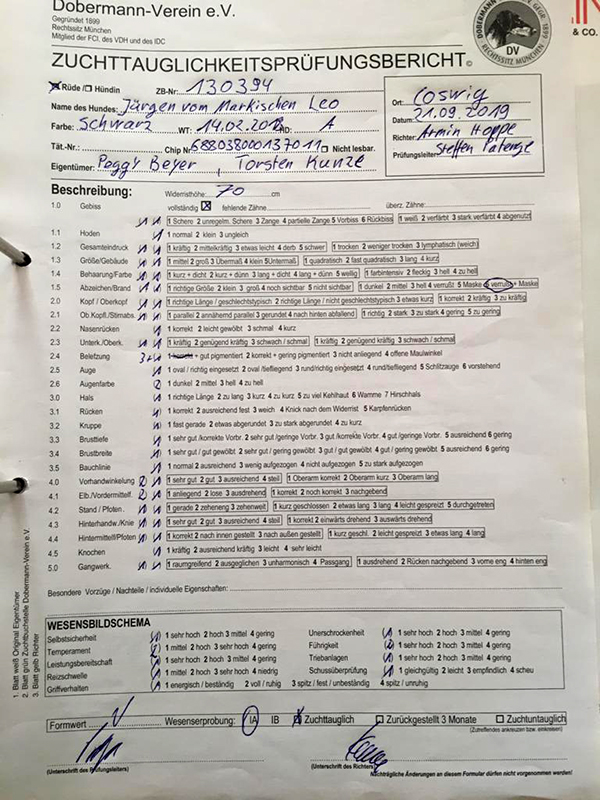 Dobermann-Verein e.V.
Gegründet 1899
Rechtssitz München
Mitglied der FCI, des VDH und des IDC
DOBERMANN-VEREIN
GEGR. 1899
RECHTSSITZ MÜNCHEN
DV
& CO.
ZUCHTTAUGLICHKEITSPRÜFUNGSBERICHT©
Rüde / Hündin ZB-Nr: 130394
Name des Hundes: Jürgen vom Markischen Leo
Farbe: Schwarz WT: 14.02.2018 HD: A
Tät.-Nr.: Chip Nr. 688038000137011 Nicht lesbar.
Eigentümer: Peggy Beyer Torsten Kunze
Ort: Coswig
Datum: 21.09.2019
Richter: Armin Hoppe
Prüfungsleiter: Steffen
Beschreibung: Widerristhöhe: 70 cm
1.0 Gebiss vollständig fehlende Zähne: überz. Zähne:
1 Schere 2 unregelm. Schere 3 Zange 4 partielle Zange 5 Vorbiss 6 Rückbiss 1 weiß 2 verfärbt 3 stark verfärbt 4 abgenutzt
1.1 Hoden 1 normal 2 klein 3 ungleich
1.2 Gesamteindruck 1 kräftig 2 mittelkräftig 3 etwas leicht 4 derb 5 schwer 1 trocken 2 weniger trocken 3 lymphatisch (weich)
1.3 Größe/Gebäude 1 mittel 2 groß 3 Übermaß 4 klein 5 Untermaß 1 quadratisch 2 fast quadratisch 3 lang 4 kurz
1.4 Behaarung/Farbe 1 kurz + dicht 2 kurz + dünn 3 lang + dicht 4 lang + dünn 5 wellig 1 farbintensiv 2 fleckig 3 hell 4 zu hell
1.5 Abzeichen/Brand 1 richtige Größe 2 klein 3 groß 4 noch sichtbar 5 nicht sichtbar 1 dunkel 2 mittel 3 hell 4 verrußt 5 Maske 6 verrußt + Maske
2.0 Kopf / Oberkopf 1 richtige Länge / geschlechtstypisch 2 richtige Länge / nicht geschlechtstypisch 3 etwas kurz 1 korrekt 2 kräftig 3 zu kräftig
2.1 Ob.Kopfl./Stirnabs. 1 parallel 2 annähernd parallel 3 gerundet 4 nach hinten abfallend 1 richtig 2 stark 3 zu stark 4 gering 5 zu gering
2.2 Nasenrücken 1 korrekt 2 leicht gewölbt 3 schmal 4 kurz
2.3 Unterk./Oberk. 1 kräftig 2 genügend kräftig 3 schwach / schmal 1 kräftig 2 genügend kräftig 3 schwach / schmal
2.4 Belefzung 3+ 1 korrekt + gut pigmentiert 2 korrekt + gering pigmentiert 3 nicht anliegend 4 offene Maulwinkel
2.5 Auge 1 oval / richtig eingesetzt 2 oval /tiefliegend 3 rund/richtig eingesetzt 4 rund/tiefliegend 5 Schlitzauge 6 vorstehend
2.6 Augenfarbe 2 1 dunkel 2 mittel 3 hell 4 zu hell
3.0 Hals 1 richtige Länge 2 zu lang 3 kurz 4 zu kurz 5 zu viel Kehlhaut 6 Wamme 7 Hirschhals
3.1 Rücken 1 korrekt 2 ausreichend fest 3 weich 4 Knick nach dem Widerrist 5 Karpfenrücken
3.2 Kruppe 1 fast gerade 2 etwas abgerundet 3 zu stark abgerundet 4 zu kurz
3.3 Brusttiefe 1 sehr gut /korrekte Vorbr. 2 sehr gut /geringe Vorbr. 3 gut /korrekte Vorbr. 4 gut /geringe Vorbr. 5 ausreichend 6 gering
3.4 Brustbreite 1 sehr gut / gut gewölbt 2 sehr gut / gering gewölbt 3 gut / gut gewölbt 4 gut / gering gewölbt 5 ausreichend 6 gering
3.5 Bauchlinie 1 normal 2 ausreichend 3 wenig aufgezogen 4 nicht aufgezogen 5 zu stark aufgezogen
4.0 Vorhandwinkelung 2 1 sehr gut 2 gut 3 ausreichend 4 steil 1 Oberarm korrekt 2 Oberarm kurz 3 Oberarm lang
4.1 Elb./Vordermittelf. 2 1 anliegend 2 lose 3 ausdrehend 1 korrekt 2 noch korrekt 3 nachgebend
4.2 Stand / Pfoten 1 gerade 2 zeheneng 3 zehenweit 1 kurz geschlossen 2 etwas lang 3 lang 4 leicht gespreizt 5 durchgetreten
4.3 Hinterhandw./Knie 1 sehr gut 2 gut 3 ausreichend 4 steil 1 korrekt 2 einwärts drehend 3 auswärts drehend
4.4 Hintermittelf/Pfoten 1 korrekt 2 nach innen gestellt 3 nach außen gestellt 1 kurz geschl. 2 leicht gespreizt 3 etwas lang 4 lang
4.5 Knochen 1 kräftig 2 ausreichend kräftig 3 leicht 4 sehr leicht
5.0 Gangwerk. 1 raumgreifend 2 ausgeglichen 3 unharmonisch 4 Passgang 1 ausdrehend 2 Rücken nachgebend 3 vorne eng 4 hinten eng
Besondere Vorzüge / Nachteile / individuelle Eigenschaften:
WESENSBILDSCHEMA
Selbstsicherheit 1 sehr hoch 2 hoch 3 mittel 4 gering Unerschrockenheit 1 sehr hoch 2 hoch 3 mittel 4 gering
Temperament 1 mittel 2 hoch 3 sehr hoch 4 gering Führigkeit 2 1 sehr hoch 2 hoch 3 mittel 4 gering
Leistungsbereitschaft 1 sehr hoch 2 hoch 3 mittel 4 gering Triebanlagen 1 sehr hoch 2 hoch 3 mittel 4 gering
Reizschwelle 1 mittel 2 hoch 3 sehr hoch 4 niedrig Schussüberprüfung 1 gleichgültig 2 leicht 3 empfindlich 4 scheu
Griffverhalten 1 energisch / beständig 2 voll / ruhig 3 spitz / fest / unbeständig 4 spitz / unruhig
Formwert V Wesenserprobung: IA IB Zuchttauglich Zurückgestellt 3 Monate Zuchtuntauglich
(Zutreffendes ankreuzen bzw. einkreisen)
(Unterschrift des Prüfungsleiters) (Unterschrift des Richters)
Nachträgliche Änderungen an diesem Formular dürfen nicht vorgenommen werden!
1. Blatt weiß Original Eigentümer
2. Blatt grün Zuchtbuchstelle Dobermann-Verein e.V.
3. Blatt gelb Richter